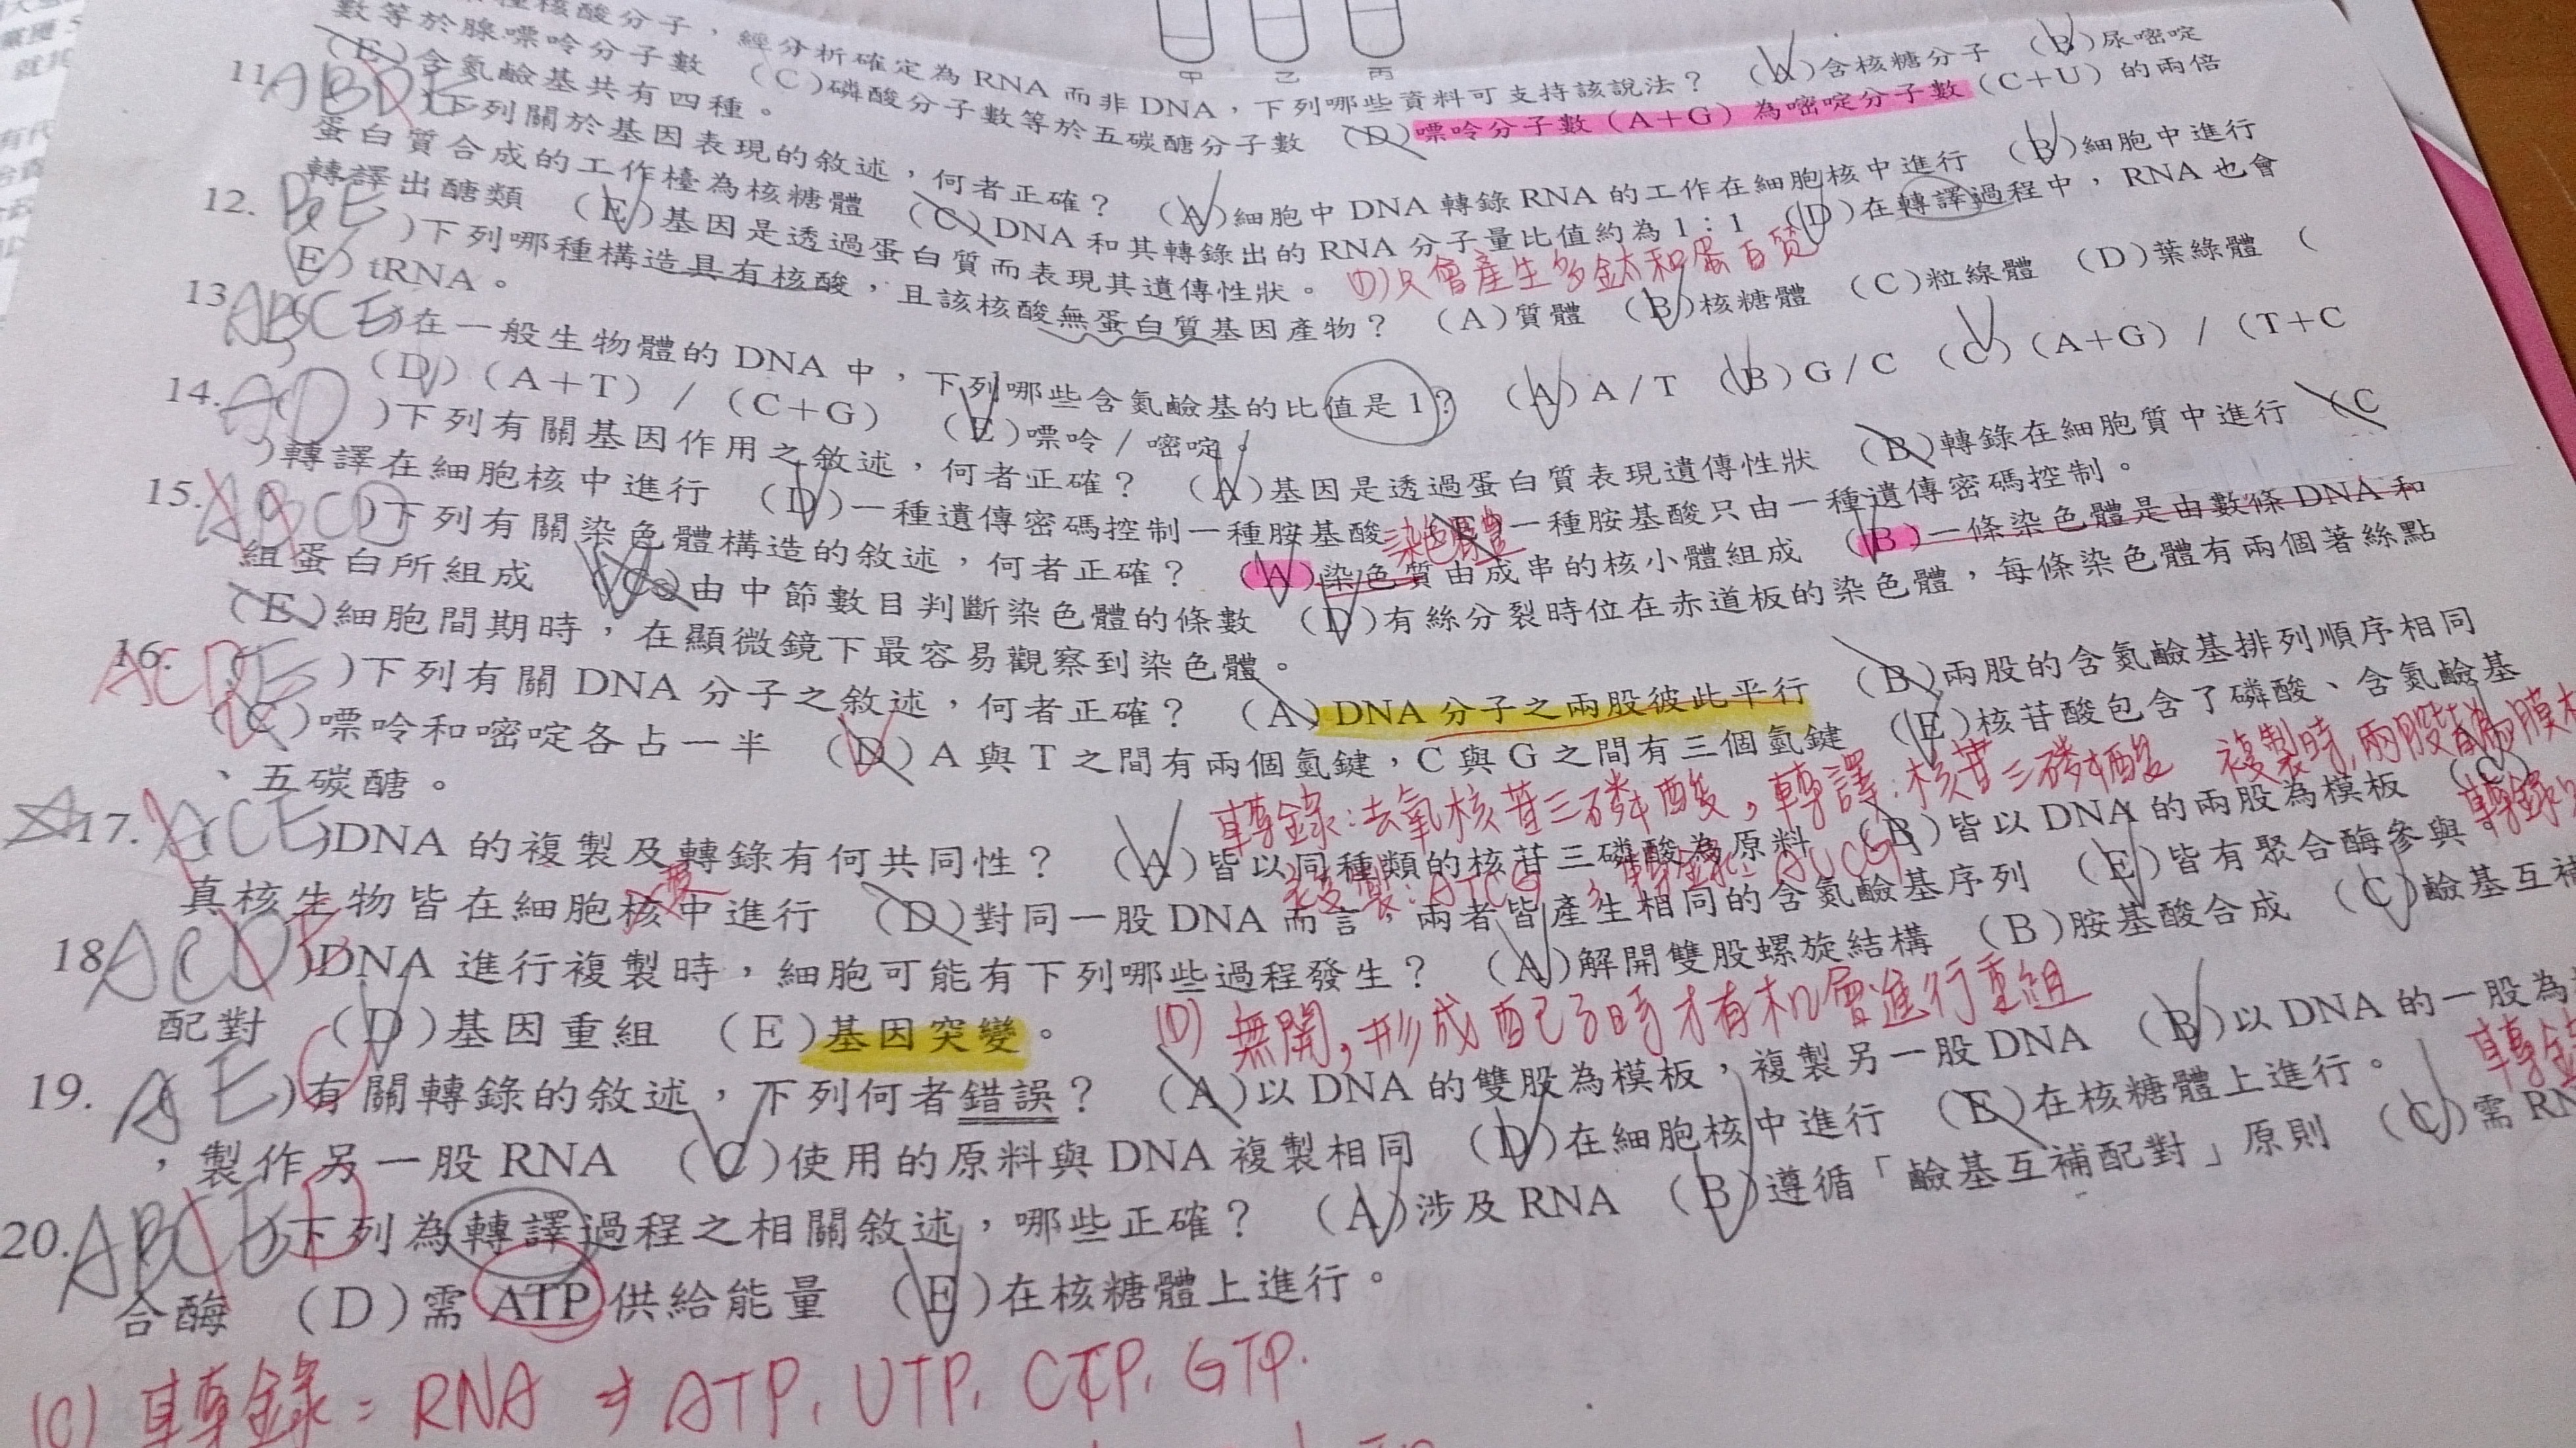 種核酸分子，經分析確定為 RNA 而非 DNA，下列哪些資料可支持該說法？ (A)含核糖分子 (B)尿嘧啶
數等於腺嘌呤分子數 (C)磷酸分子數等於五碳醣分子數 (D)嘌呤分子數（A+G）為嘧啶分子數（C+U）的兩倍
(E)含氮鹼基共有四種。
11. ABDE )下列關於基因表現的敘述，何者正確？ (A)細胞中 DNA 轉錄 RNA 的工作在細胞核中進行 (B)細胞中進行
蛋白質合成的工作檯為核糖體 (C)DNA 和其轉錄出的 RNA 分子量比值約為 1：1 (D)在轉譯過程中，RNA 也會
轉譯出醣類 (E)基因是透過蛋白質而表現其遺傳性狀。 (D)只會產生多鈦和蛋白質
12. BE )下列哪種構造具有核酸，且該核酸無蛋白質基因產物？ (A)質體 (B)核糖體 (C)粒線體 (D)葉綠體 (
(E) tRNA。
13. ABCE )在一般生物體的 DNA 中，下列哪些含氮鹼基的比值是 1？ (A) A / T (B) G / C (C)（A+G）/（T+C
） (D)（A+T）/（C+G） (E)嘌呤／嘧啶。
14. AD )下列有關基因作用之敘述，何者正確？ (A)基因是透過蛋白質表現遺傳性狀 (B)轉錄在細胞質中進行 (C
)轉譯在細胞核中進行 (D)一種遺傳密碼控制一種胺基酸 (E)一種胺基酸只由一種遺傳密碼控制。
染色體
15. ABCD )下列有關染色體構造的敘述，何者正確？ (A)染色質由成串的核小體組成 (B)一條染色體是由數條 DNA 和
組蛋白所組成 (C)由中節數目判斷染色體的條數 (D)有絲分裂時位在赤道板的染色體，每條染色體有兩個著絲點
(E)細胞間期時，在顯微鏡下最容易觀察到染色體。
16. ACDE )下列有關 DNA 分子之敘述，何者正確？ (A) DNA 分子之兩股彼此平行 (B)兩股的含氮鹼基排列順序相同
(C)嘌呤和嘧啶各占一半 (D) A 與 T 之間有兩個氫鍵，C 與 G 之間有三個氫鍵 (E)核苷酸包含了磷酸、含氮鹼基
、五碳醣。
轉錄：去氧核苷三磷酸，轉譯：核苷三磷酸 複製時，兩股都為膜
17. ACE )DNA 的複製及轉錄有何共同性？ (A)皆以同種類的核苷三磷酸為原料 (B)皆以 DNA 的兩股為模板 (C)
複製：ATCG，轉錄：AUCG 轉錄
真核生物皆在細胞核中進行 (D)對同一股 DNA 而言，兩者皆產生相同的含氮鹼基序列 (E)皆有聚合酶參與。
18. ACDE )DNA 進行複製時，細胞可能有下列哪些過程發生？ (A)解開雙股螺旋結構 (B)胺基酸合成 (C)鹼基互補
配對 (D)基因重組 (E)基因突變。 (D) 無關，形成配子時才有机會進行重組
19. ACE )有關轉錄的敘述，下列何者錯誤？ (A)以 DNA 的雙股為模板，複製另一股 DNA (B)以 DNA 的一股為
，製作另一股 RNA (C)使用的原料與 DNA 複製相同 (D)在細胞核中進行 (E)在核糖體上進行。 轉錄
20. ABCED )下列為轉譯過程之相關敘述，哪些正確？ (A)涉及 RNA (B)遵循「鹼基互補配對」原則 (C)需 RN
合酶 (D)需 ATP 供給能量 (E)在核糖體上進行。
(C) 轉錄：RNA ⇒ ATP, UTP, CTP, GTP.
甲 乙 丙